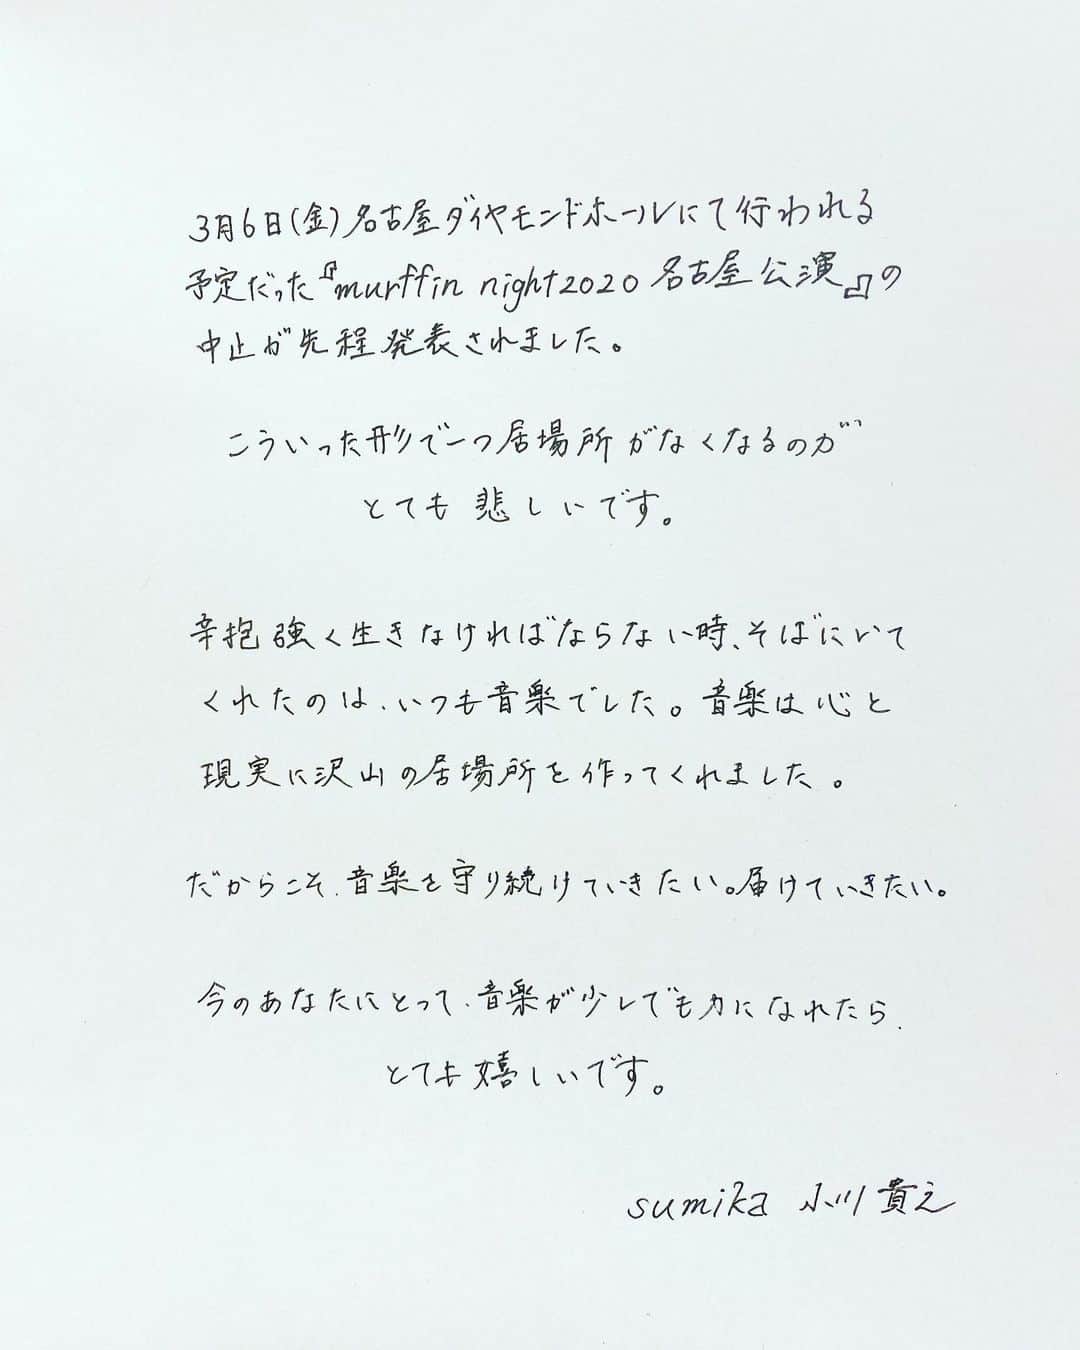 3月6日(金)名古屋ダイヤモンドホールにて行われる
予定だった『murffin night2020 名古屋公演』の
中止が先程発表されました。
こういった形で一つ居場所がなくなるのが
とても悲しいです。
辛抱強く生きなければならない時、そばにいて
くれたのは、いつも音楽でした。音楽は心と
現実に沢山の居場所を作ってくれました。
だからこそ、音楽を守り続けていきたい。届けていきたい。
今のあなたにとって、音楽が少しでも力になれたら、
とても嬉しいです。
sumika 小川貴之